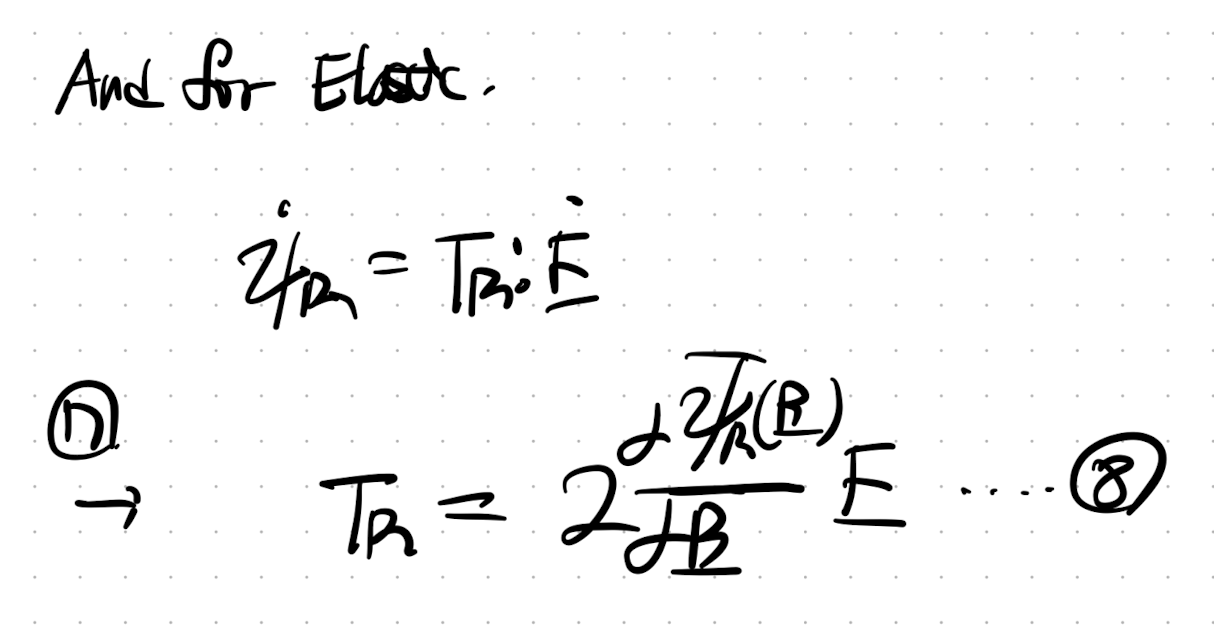 And for Elastic.
ψ̇_R = T_R : Ḟ
⑰ → T_R = 2 dψ̅_R(B)/dB F ..... ⑱